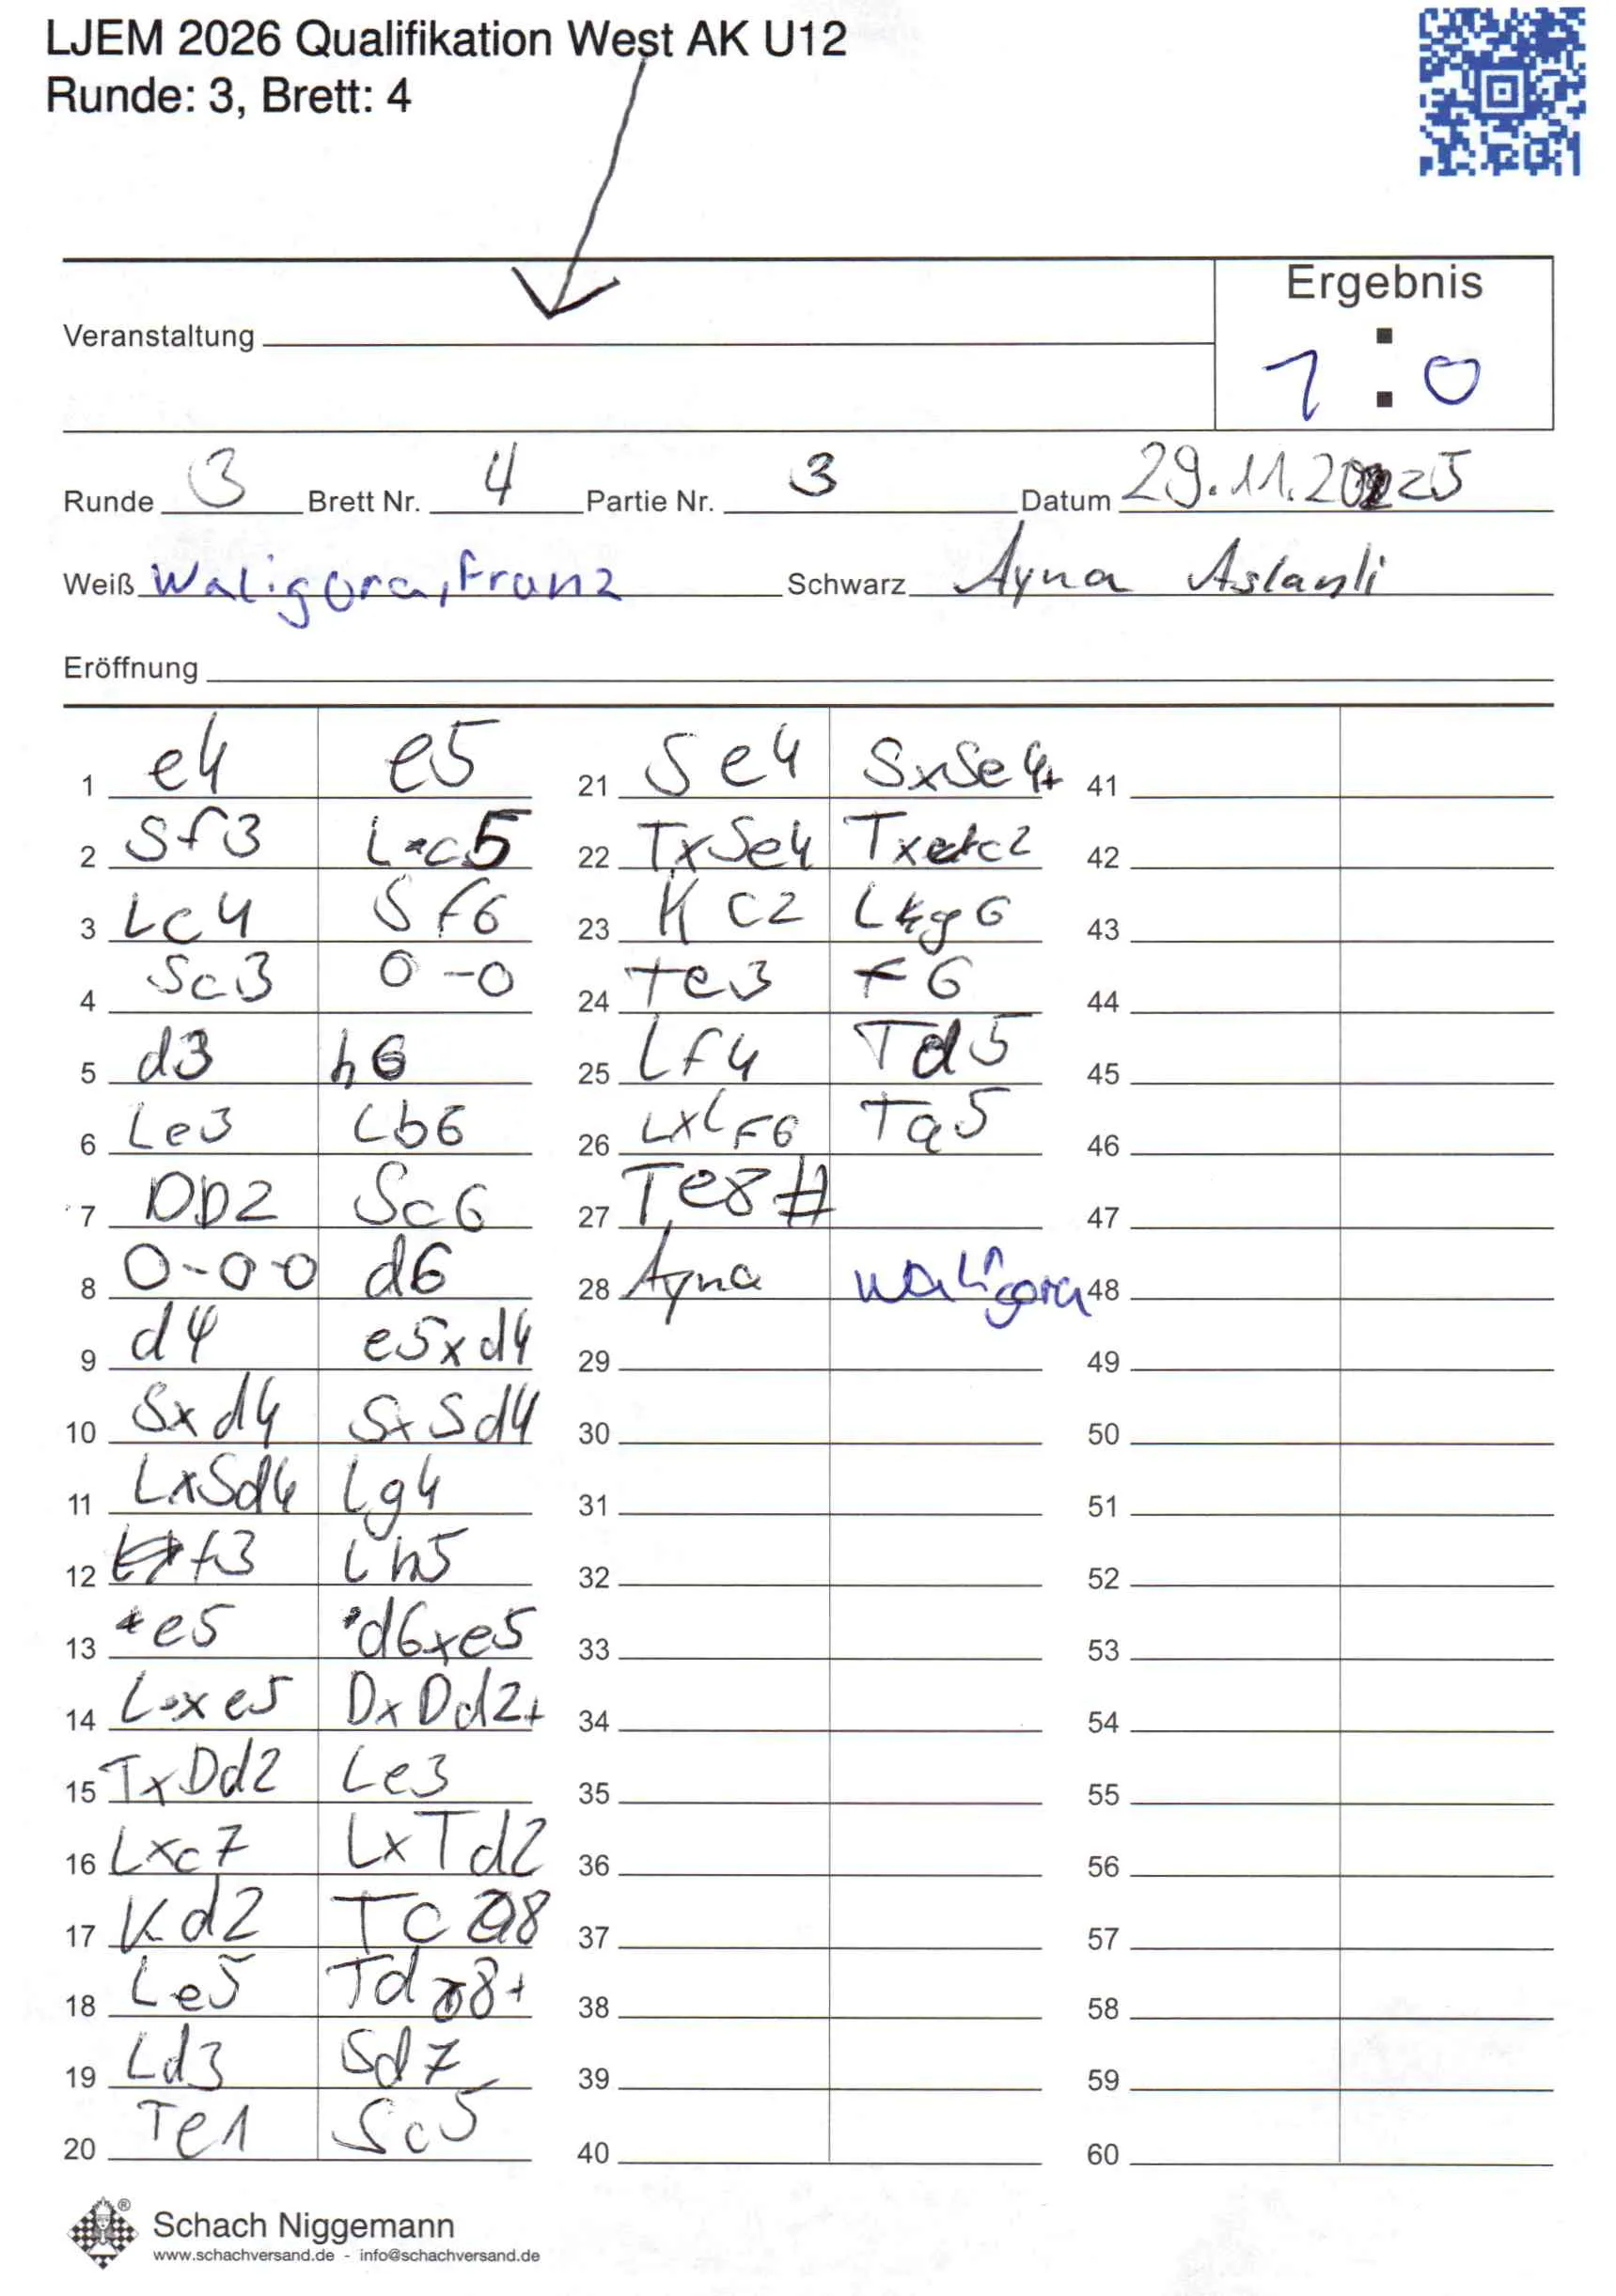 LJEM 2026 Qualifikation West AK U12
Runde: 3, Brett: 4
Ergebnis
Veranstaltung
1 : 0
Runde 3 Brett Nr. 4 Partie Nr. 3 Datum 29.11.2025
Weiß Waligora, Franz Schwarz Ayna Aslanli
Eröffnung
1 e4 e5
2 Sf3 Lc5
3 Lc4 Sf6
4 Sc3 0-0
5 d3 h6
6 Le3 Lb6
7 DD2 Sc6
8 0-0-0 d6
9 d4 e5xd4
10 Sxd4 SxSd4
11 LxSd4 Lg4
12 f3 Lh5
13 e5 d6xe5
14 Lxe5 DxDd2+
15 TxDd2 Le3
16 Lxc7 LxTd2
17 Kd2 Tc8
18 Le5 Td8+
19 Ld3 Sd7
20 Te1 Sc5
21 Se4 SxSe4+
22 TxSe4 Txc2
23 Kc2 Lg6
24 te3 f6
25 Lf4 Td5
26 LxLF6 Ta5
27 Te8#
28 Ayna Waligora
29
30
31
32
33
34
35
36
37
38
39
40
41
42
43
44
45
46
47
48
49
50
51
52
53
54
55
56
57
58
59
60
® Schach Niggemann
www.schachversand.de - info@schachversand.de